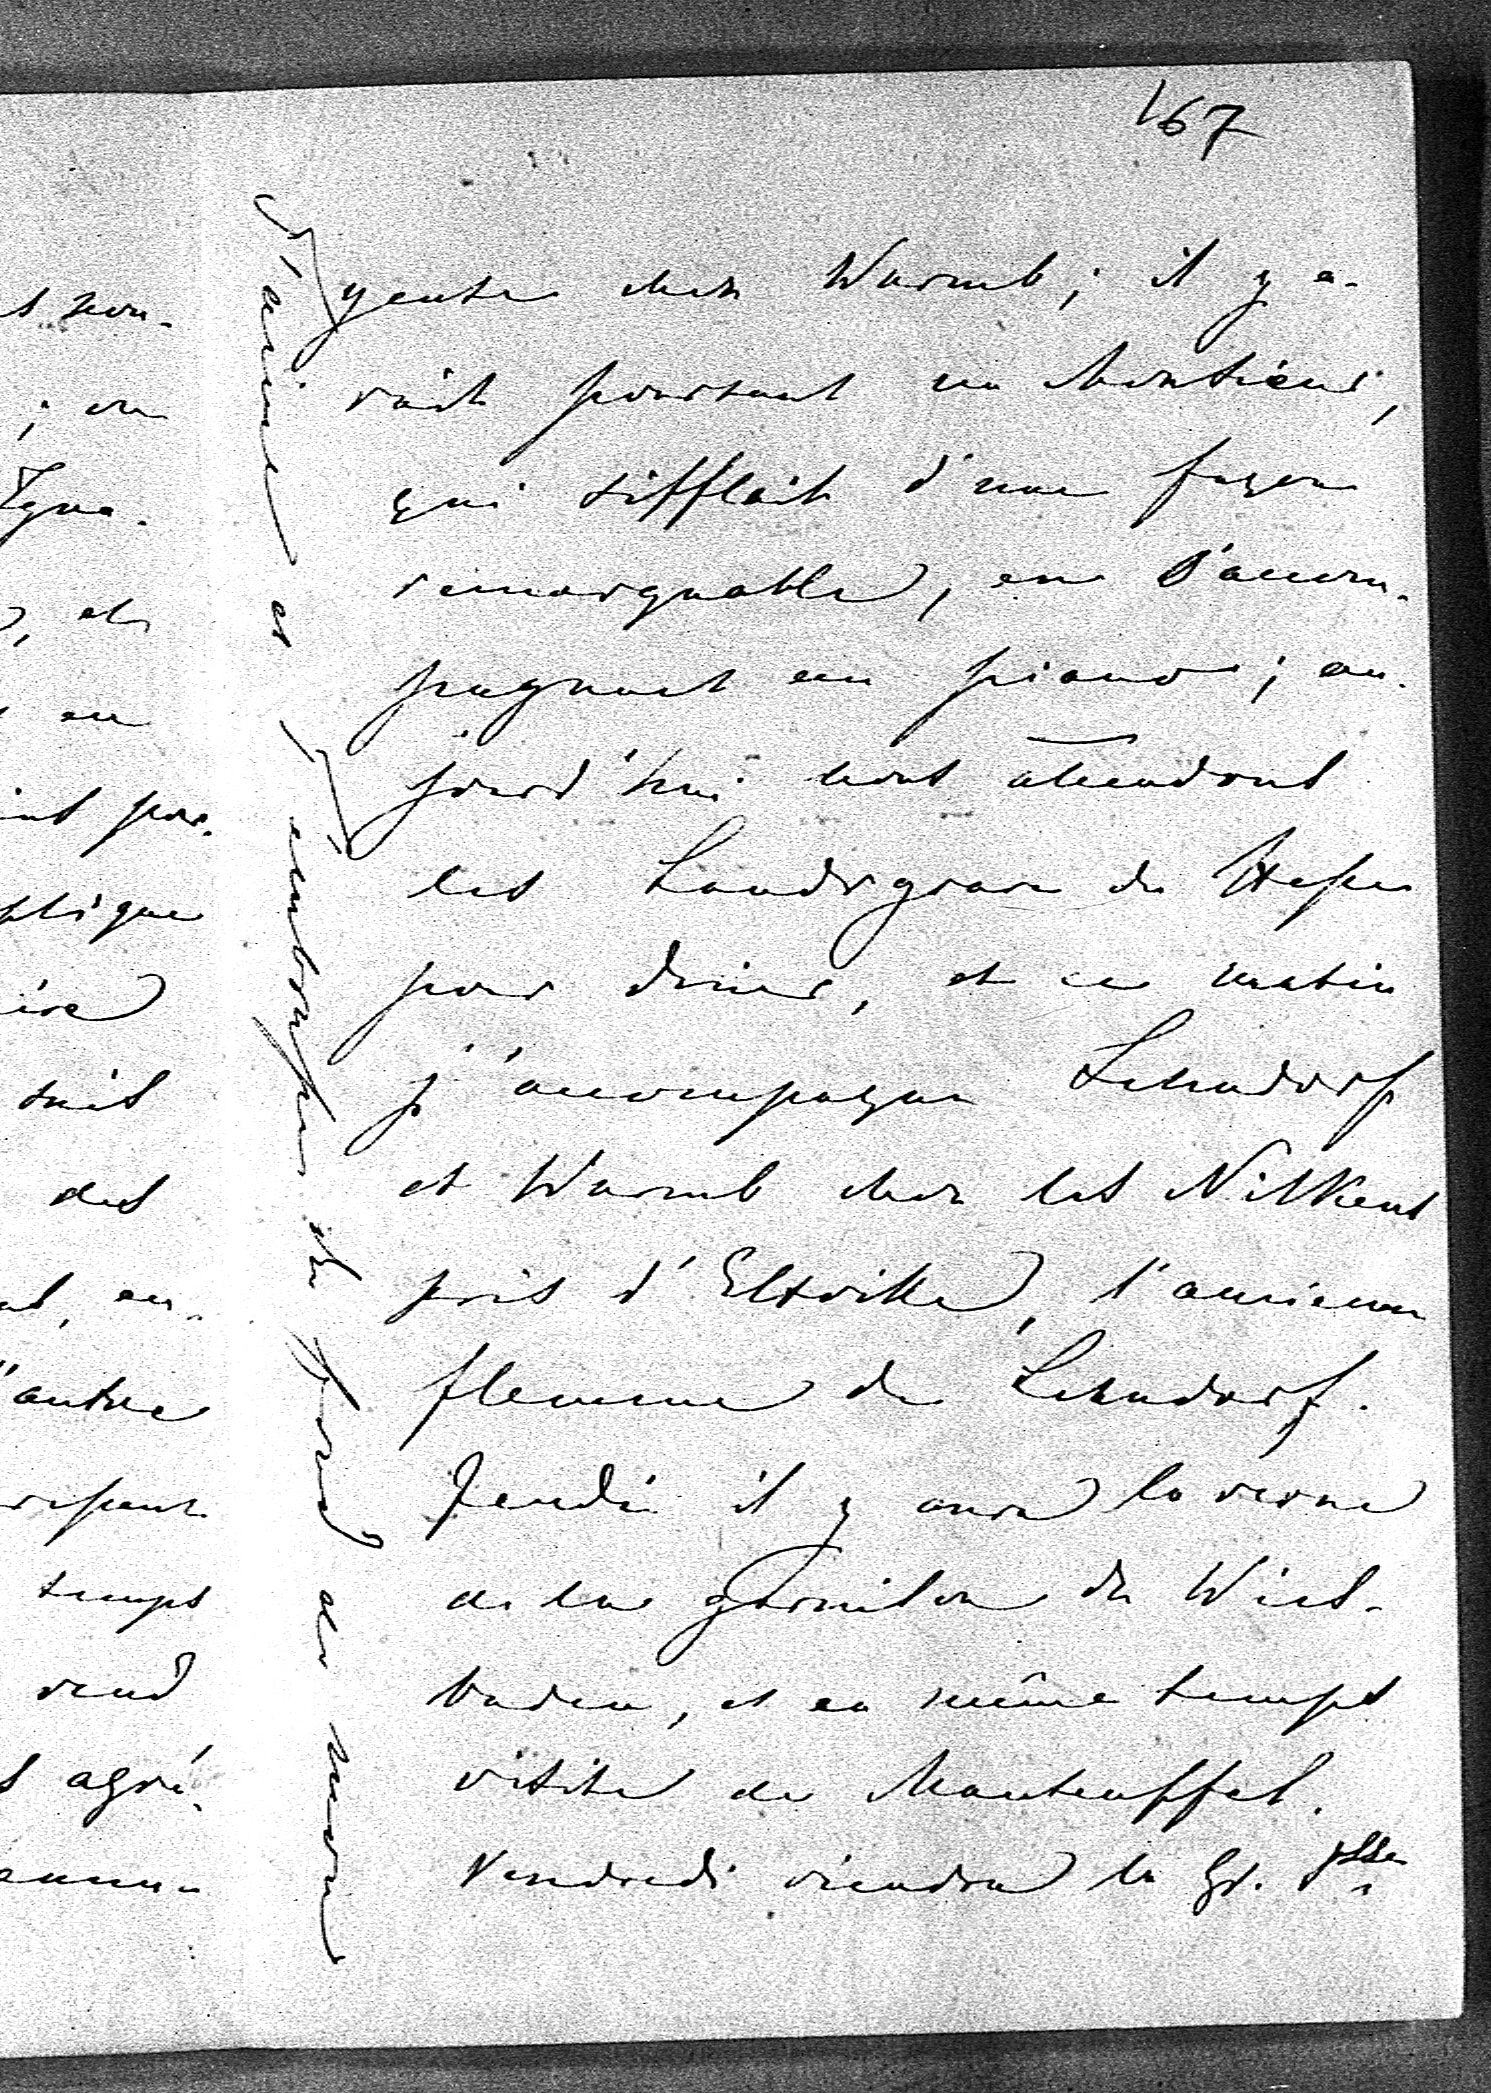 167
geuse chez Wurmb; il y a-
vait pourtant un Monsieur,
qui sifflait d'une façon
remarquable, en s'accom-
pagnant au piano; au-
jourd'hui nous attendons
les Landgrave de Hesse
pour diner, et ce matin
j'accompagne Lehndorf
et Wurmb chez les Nilkens
près d'Eltville, l'ancienne
flamme de Lehndorf.
Jeudi il y aura la revue
de la garnison de Wies-
baden, et en même temps
visite de Manteuffel.
Vendredi viendra la Gr. Dsse
t'aime et T'embrasse du fond de mon
s nou-
; on
et
au
plique
suis
des
l'autre
temps
rend
s agré-